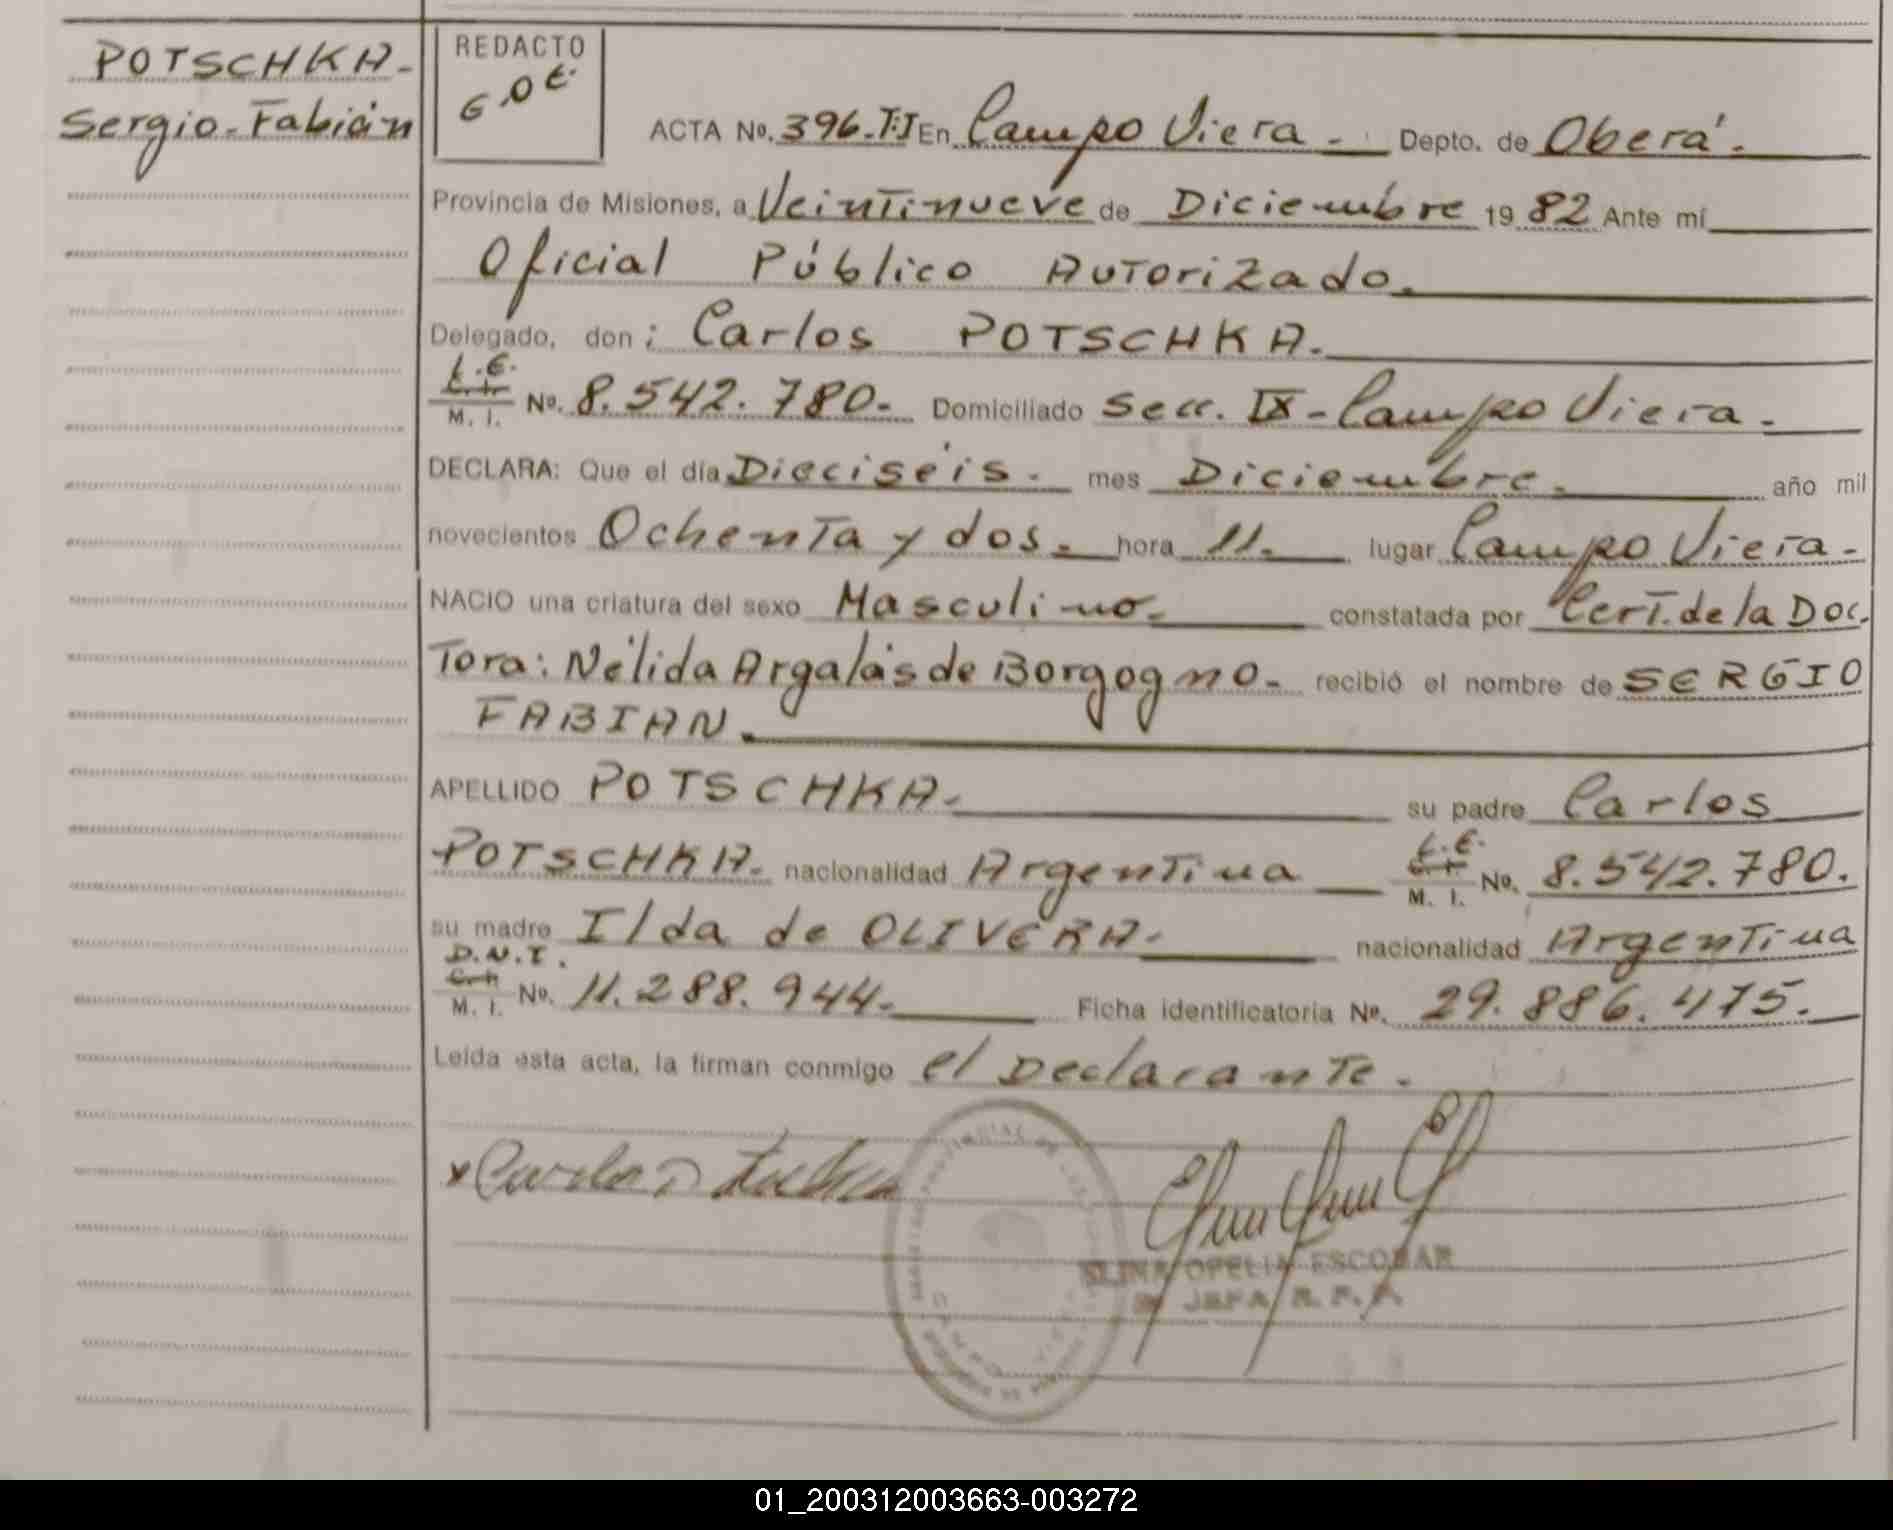 POTSCHKA-
Sergio-Fabián
REDACTO
ACTA No. 396.T:I En Campo Viera - Depto. de Oberá.
Provincia de Misiones, a Veintinueve de Diciembre 1982 Ante mí
Oficial Público Autorizado.
Delegado, don: Carlos POTSCHKA.
L.E.
C. I.
M. I. No. 8.542.780- Domiciliado Secc. IX-Campo Viera.
DECLARA: Que el día Dieciséis. mes Diciembre. año mil
novecientos Ochenta y dos. hora 11. lugar Campo Viera-
NACIO una criatura del sexo Masculino- constatada por Cert. de la Doc.
Tora: Nélida Argalás de Borgogno- recibió el nombre de SERGIO
FABIAN.
APELLIDO POTSCHKA- su padre Carlos
POTSCHKA. nacionalidad Argentina L.E. C. I. M. I. No. 8.542.780.
su madre Ilda de OLIVERA- nacionalidad Argentina
D.N.I.
C. I.
M. I. No. 11.288.944- Ficha identificatoria No. 29.886.475.
Leída esta acta, la firman conmigo el Declarante.
OFELIA ESCOBAR
JEFA R. P. P.
CAMPO VIERA
01_200312003663-003272